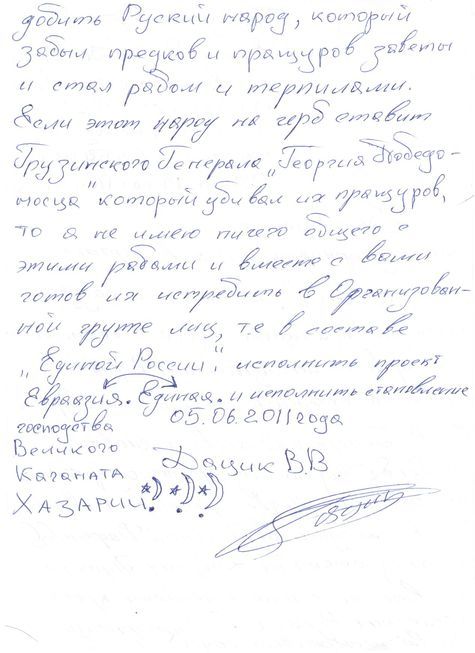 добить Руский народ, который
забыл предков и пращуров заветы
и стал рабом и терпилами.
Если этот народ на герб ставит
Грузинского Генерала „Георгия Победо-
носца" который убивал их пращуров,
то я не имею ничего общего с
этими рабами и вместе с вами
готов их истребить в Организован-
ной группе лиц, т.е в составе
„Единой России", исполнить проект
Евраазия. Единая. и исполнить становление
господства
05.06.2011 года
Великого
Каганата
Хазарии.
Дацик В.В.